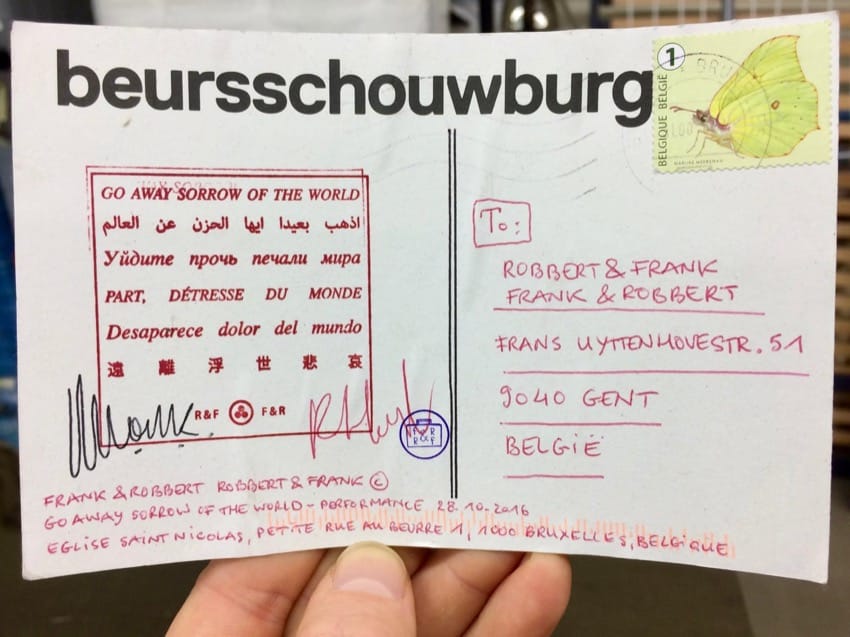 beursschouwburg
1
BELGIQUE BELGIË
GO AWAY SORROW OF THE WORLD
اذهب بعيدا ايها الحزن عن العالم
Уйдите прочь печали мира
PART, DÉTRESSE DU MONDE
Desaparece dolor del mundo
遠離浮世悲哀
R&F F&R
To:
ROBBERT & FRANK
FRANK & ROBBERT
FRANS UYTTENHOVESTR. 51
9040 GENT
BELGIË
FRANK & ROBBERT ROBBERT & FRANK ©
GO AWAY SORROW OF THE WORLD - PERFORMANCE 28.10-2016
EGLISE SAINT NICOLAS, PETITE RUE AU BEURRE 1, 1000 BRUXELLES, BELGIQUE